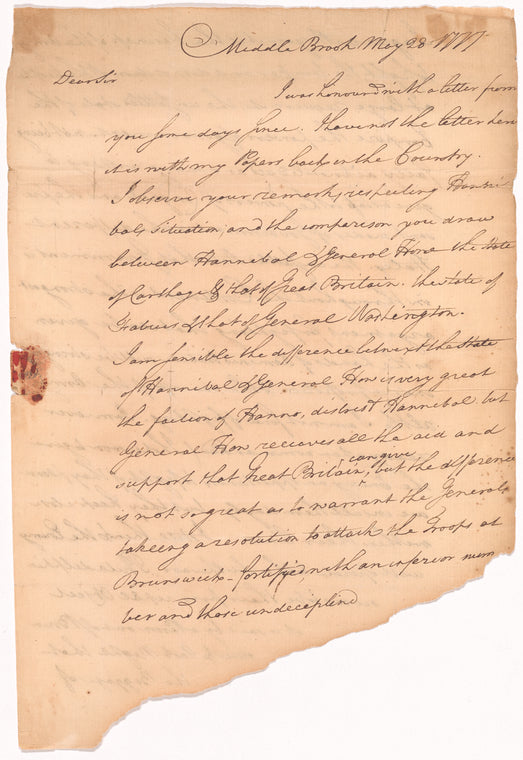 Middle Brook May 28 1777
Dear Sir
I was honourd with a letter from
you some days since. I have not the letter here
it is with my Papers back in the Country.
I observe your remarks respecting Hanni
bals Situation, and the comparison you draw
between Hannebal & General Howe the State
of Carthage & that of Great Britain. the state of
Fabius & that of General Washington.
I am sensible the difference between the State
of Hannibal & General How is very great
the faction of Hanno, distrest Hannebal but
General How recieves all the aid and
support that Great Britain can give, but the difference
is not so great as to warrant the Generals
takeing a resolution to attack the Troops at
Brunswick fortifyed, with an inferior num
ber and those undeciplind